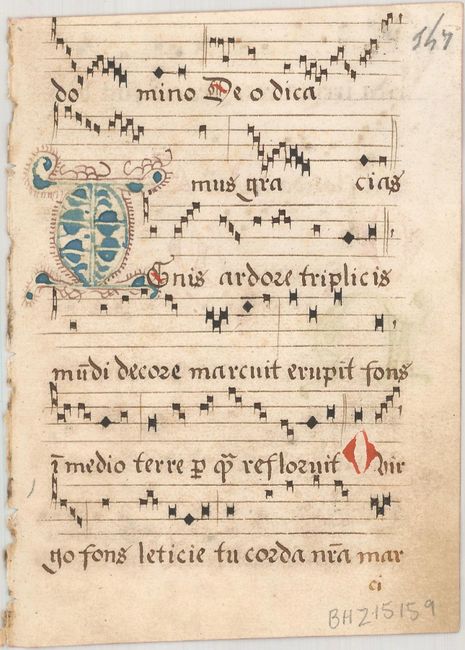 do mino De o dica
mus gra cias
IGnis ardore triplicis
mūdi decore marcuit erupit fons
ī medio terre ꝑ q̄ refloruit O vir
go fons leticie tu corda nr̄a mar
ci
BH215159